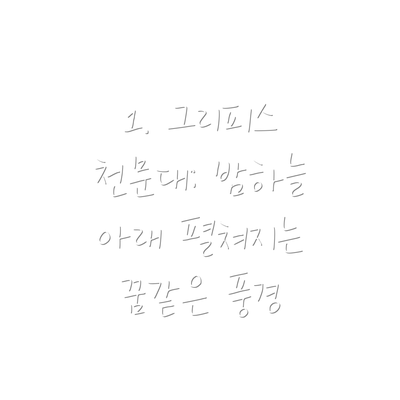 1. 그리피스
천문대: 밤하늘
아래 펼쳐지는
꿈같은 풍경